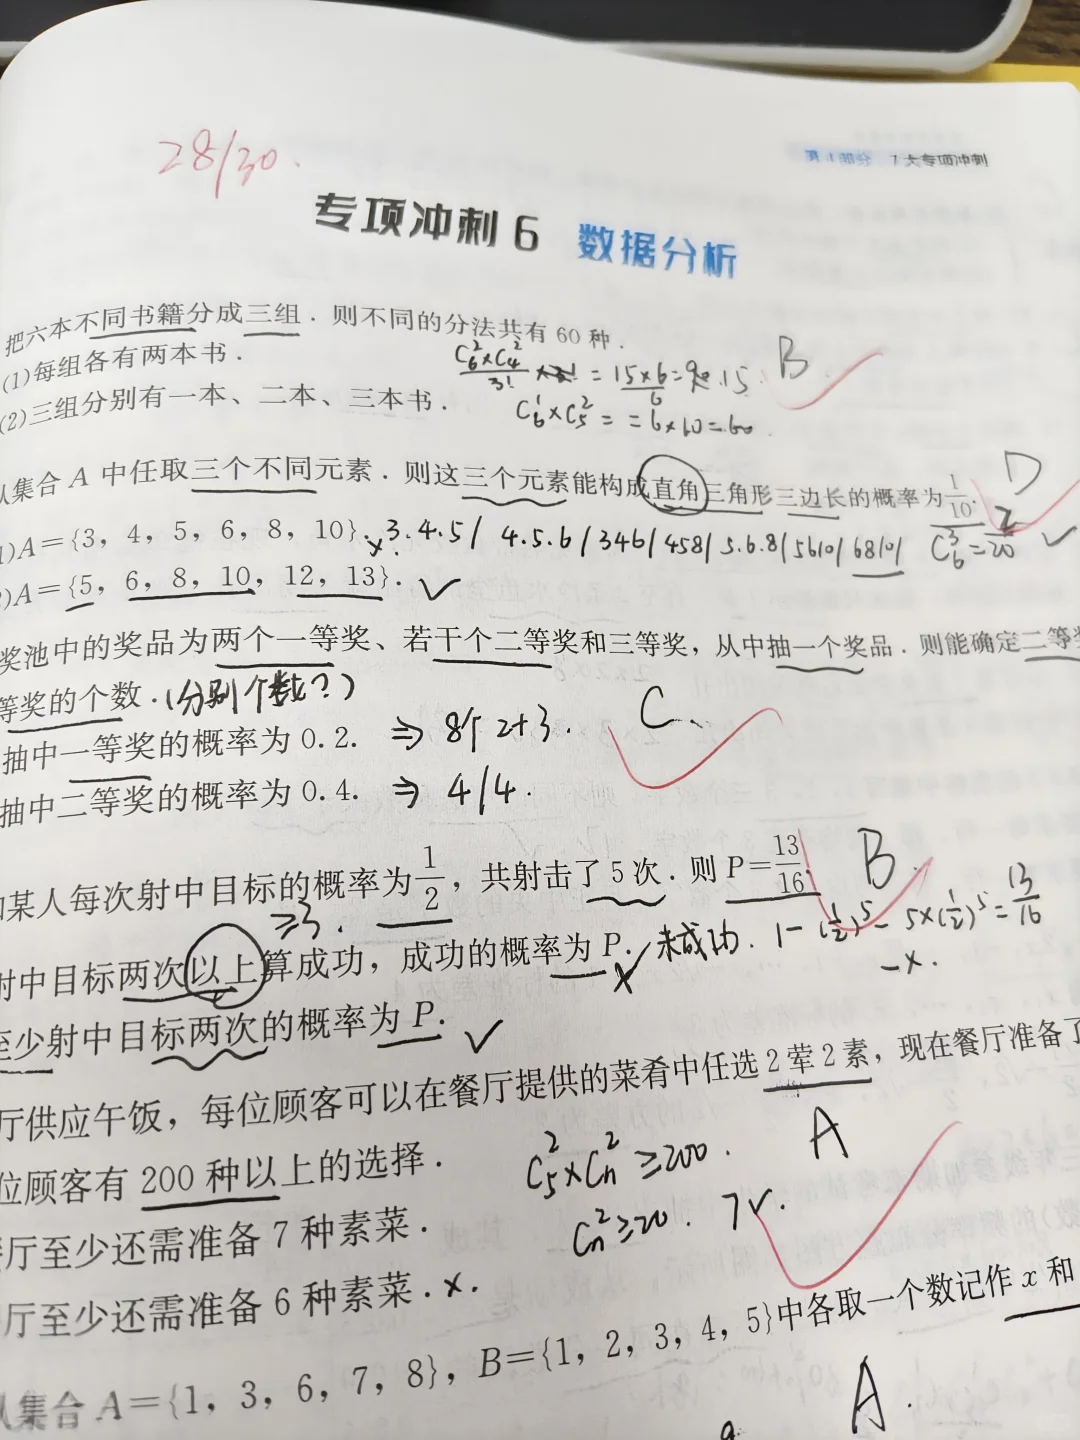 28/30.
7大专项冲刺
专项冲刺6 数据分析
把六本不同书籍分成三组.则不同的分法共有60种.
(1)每组各有两本书.
(2)三组分别有一本、二本、三本书.
B
= 15×6/6 = 15
C₆¹×C₅² = = 6×10=60
从集合 A 中任取三个不同元素.则这三个元素能构成直角三角形三边长的概率为1/10.
D
1)A={3,4,5,6,8,10}. × 3.4.5/ 4.5.6/346/458/5.6.8/5610/6810/
C₆³ = 2/20 ✓
)A={5,6,8,10,12,13}. ✓
奖池中的奖品为两个一等奖、若干个二等奖和三等奖,从中抽一个奖品.则能确定二等奖
等奖的个数.(分别个数?)
C、
抽中一等奖的概率为0.2. ⇒ 8个 2+3.
抽中二等奖的概率为0.4. ⇒ 4/4.
某人每次射中目标的概率为1/2,共射击了5次.则P=13/16.
B.
≥3.
射中目标两次以上算成功,成功的概率为P. × 未成功. 1-(1/2)⁵-5×(1/2)⁵=13/16
-×.
至少射中目标两次的概率为P. ✓
厅供应午饭,每位顾客可以在餐厅提供的菜肴中任选2荤2素,现在餐厅准备了
位顾客有200种以上的选择.
C₅²×Cₙ²≥200.
A
厅至少还需准备7种素菜.
Cₙ²≥20. 7✓.
厅至少还需准备6种素菜. ×.
从集合A={1,3,6,7,8},B={1,2,3,4,5}中各取一个数记作x和
A.